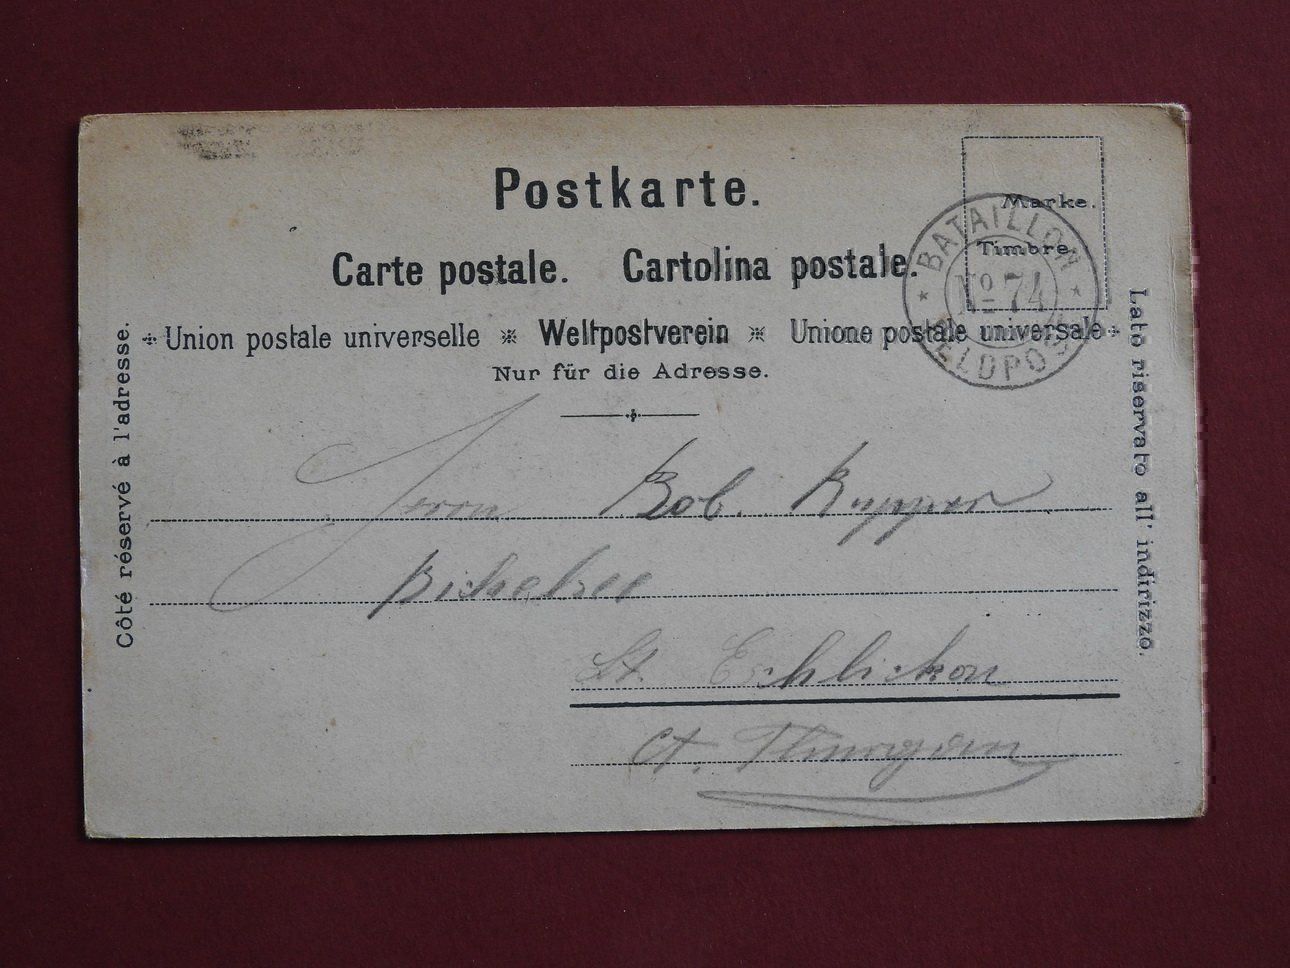 Postkarte.
Carte postale. Cartolina postale.
Union postale universelle Weltpostverein Unione postale universale
Nur für die Adresse.
Marke.
Timbre.
BATAILLON
No 74
FELDPOST
Côté réservé à l'adresse.
Lato riservato all' indirizzo.
Herrn Rob. Rupper
Bichelsee
St. Eschlikon
Ct. Thurgau